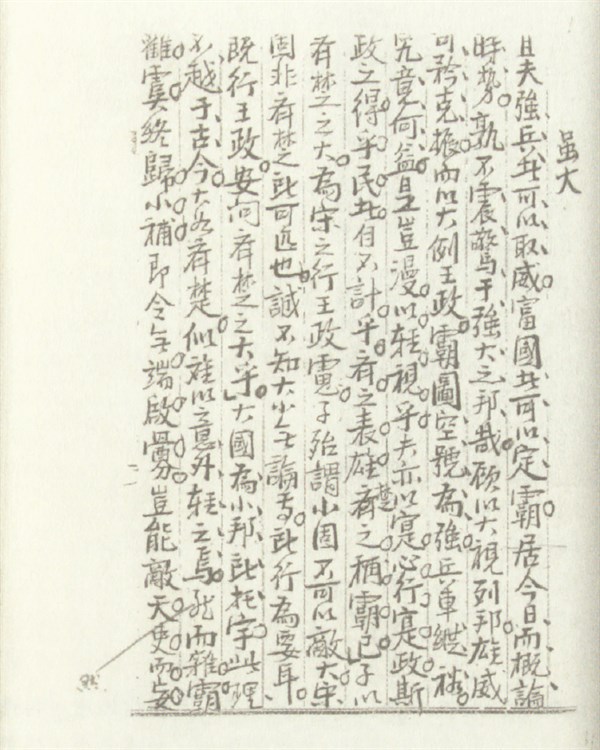 虽大
且夫強兵所可以取威富國所可以定霸居今日而概論
時勢孰不震驚于強大之邦哉顧以大視列邦雄威
可矜克振而以大例王政霸圖空號為強兵車縱
究竟何益且王豈漫以輕視乎夫亦以寔心行寔政斯
政之得乎民自不計乎齊之表雄楚之稱霸已子以
齊楚之大為宋之行王政慮子殆謂小固不可以敵大宋
固非齊楚所可匹也誠不知大小無論焉所行為要耳
既行王政安問齊楚之大乎大國為小邦所托宇此理
不越于古今大若齊楚似難以意外輕之焉然而雜霸
驩虞終歸小補即令無端啟釁豈能敵天吏而妄